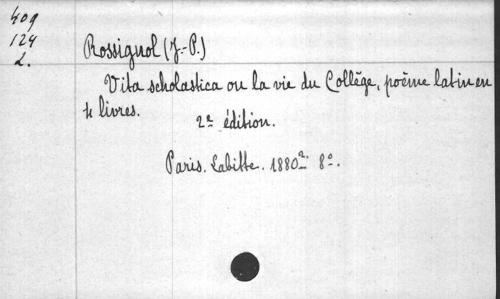 409
124
2.
Rossignol (J.-P.)
Vita scholastica ou la vie du Collège, poème latin en
4 livres.
2e édition.
Paris. Labitte. 1880. 8º.